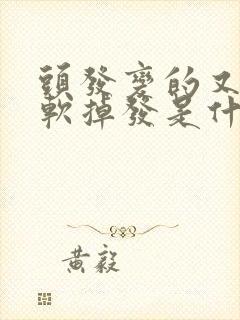 頭發變的又
軟掉發是什
黄毅